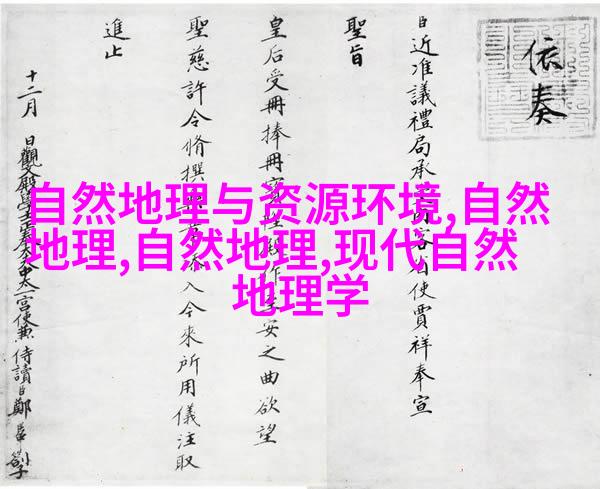 依奏
臣近准議禮局承客省使賈祥奉宣
聖旨
皇后受冊捧冊寶作安之曲欲望
聖慈許令脩撰入今來所用儀注取
進止
十二月 日觀文殿學士太一宮使兼侍讀臣鄭
自然地理与资源环境,自然
地理,自然地理,现代自然
地理学